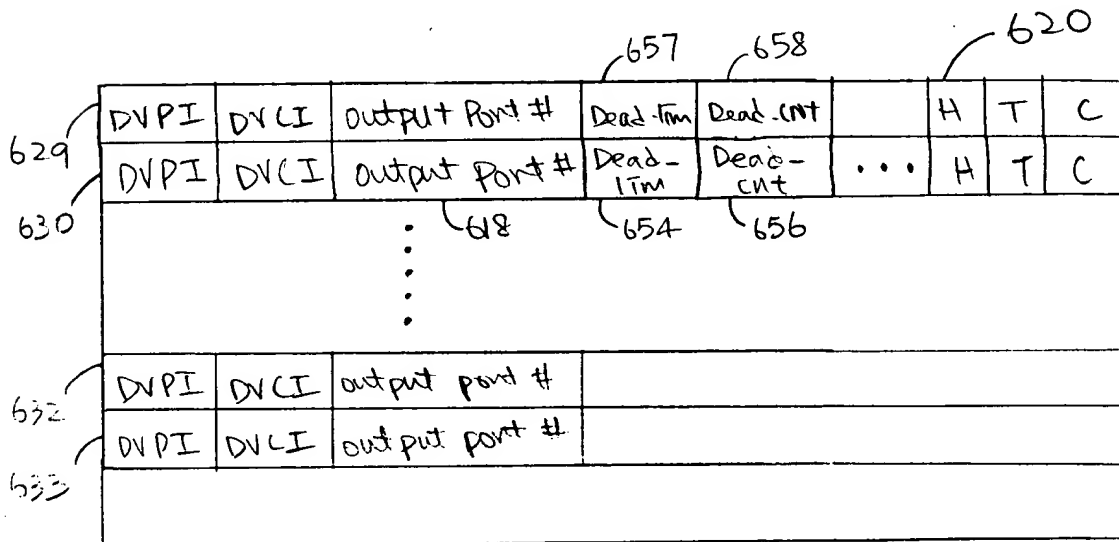 620
657 658
DVPI DVCI output Port # Dead-Tim Dead-cnt H T C
629
DVPI DVCI output Port # Dead-Tim Dead-cnt ... H T C
630
618 654 656
DVPI DVCI output port #
632
DVPI DVCI output port #
633